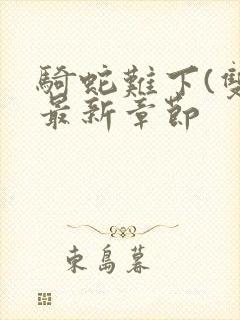 騎蛇難下(雙
最新章節
東島暮